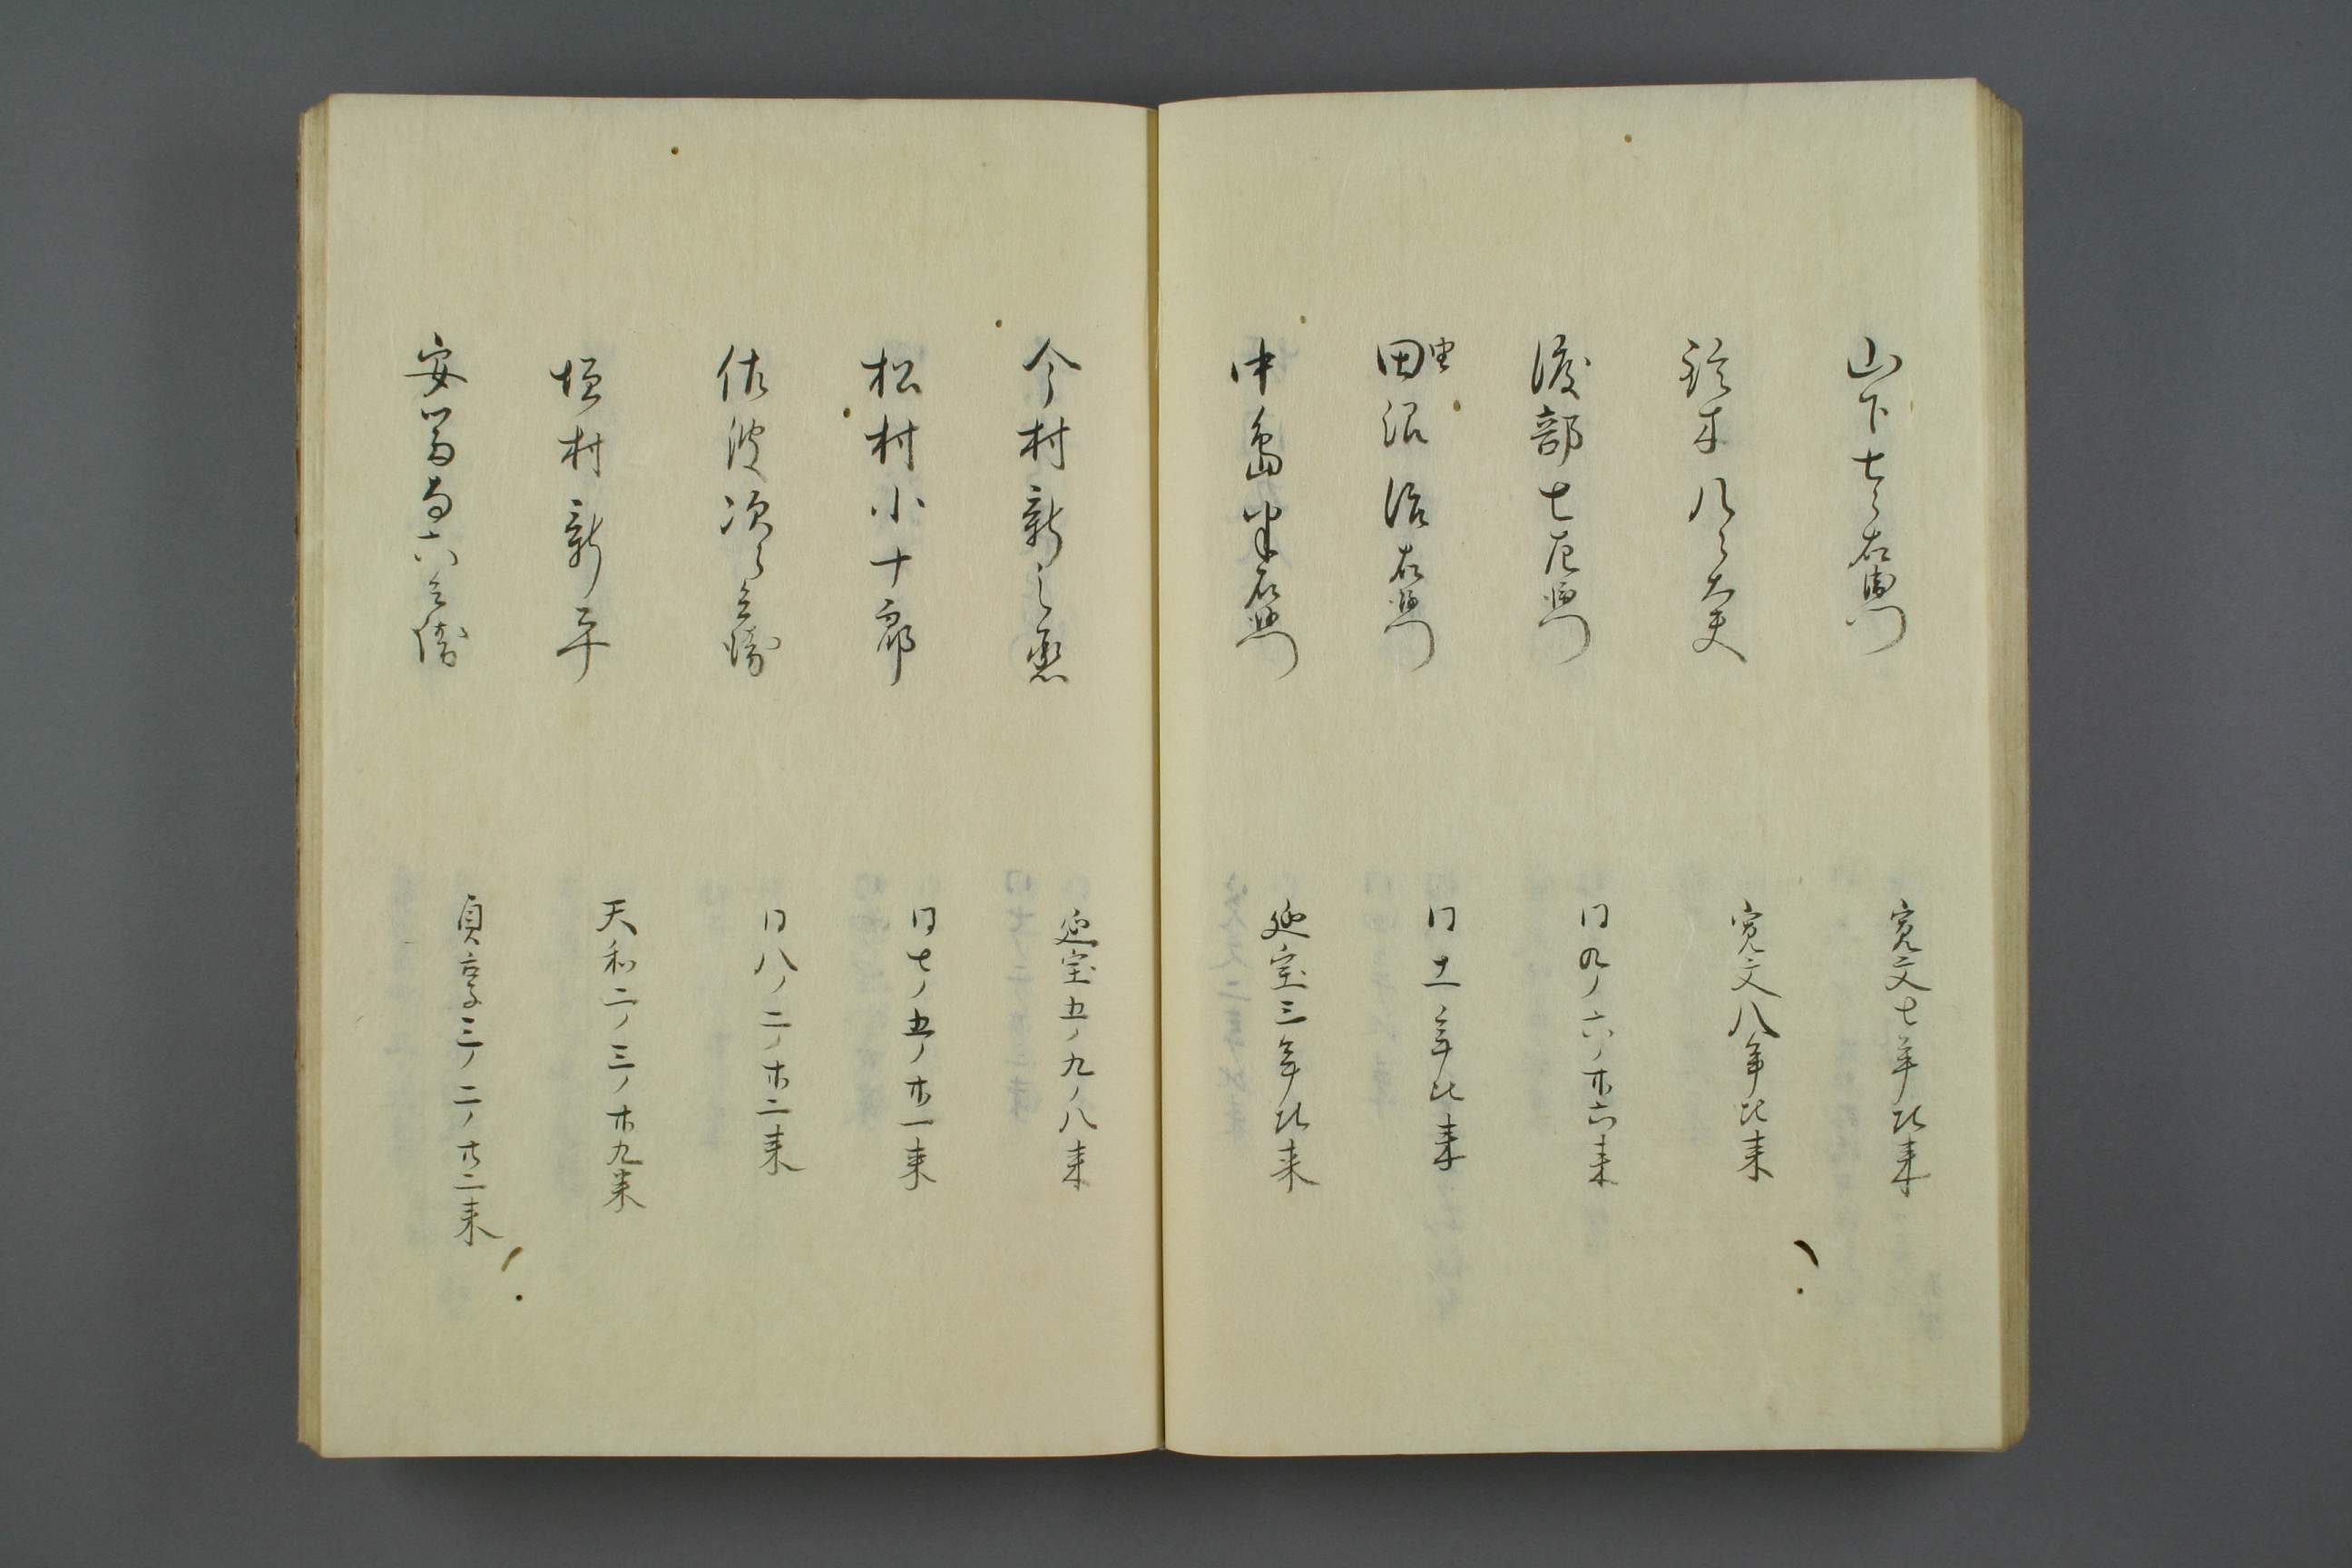 山下七之右衛門
寛文七年比来
鈴木八之大夫
寛文八年比来
渡部七左衛門
同九ノ六ノ廿六来
田沼治右衛門
同十一年比来
中島半右衛門
延宝三年比来
今村新之丞
延宝五ノ九ノ八来
松村小十郎
同七ノ五ノ廿一来
佐波次兵衛
同八ノ二ノ廿二来
村新平
天和二ノ三ノ廿九来
安六兵衛
貞享三ノ二ノ廿二来